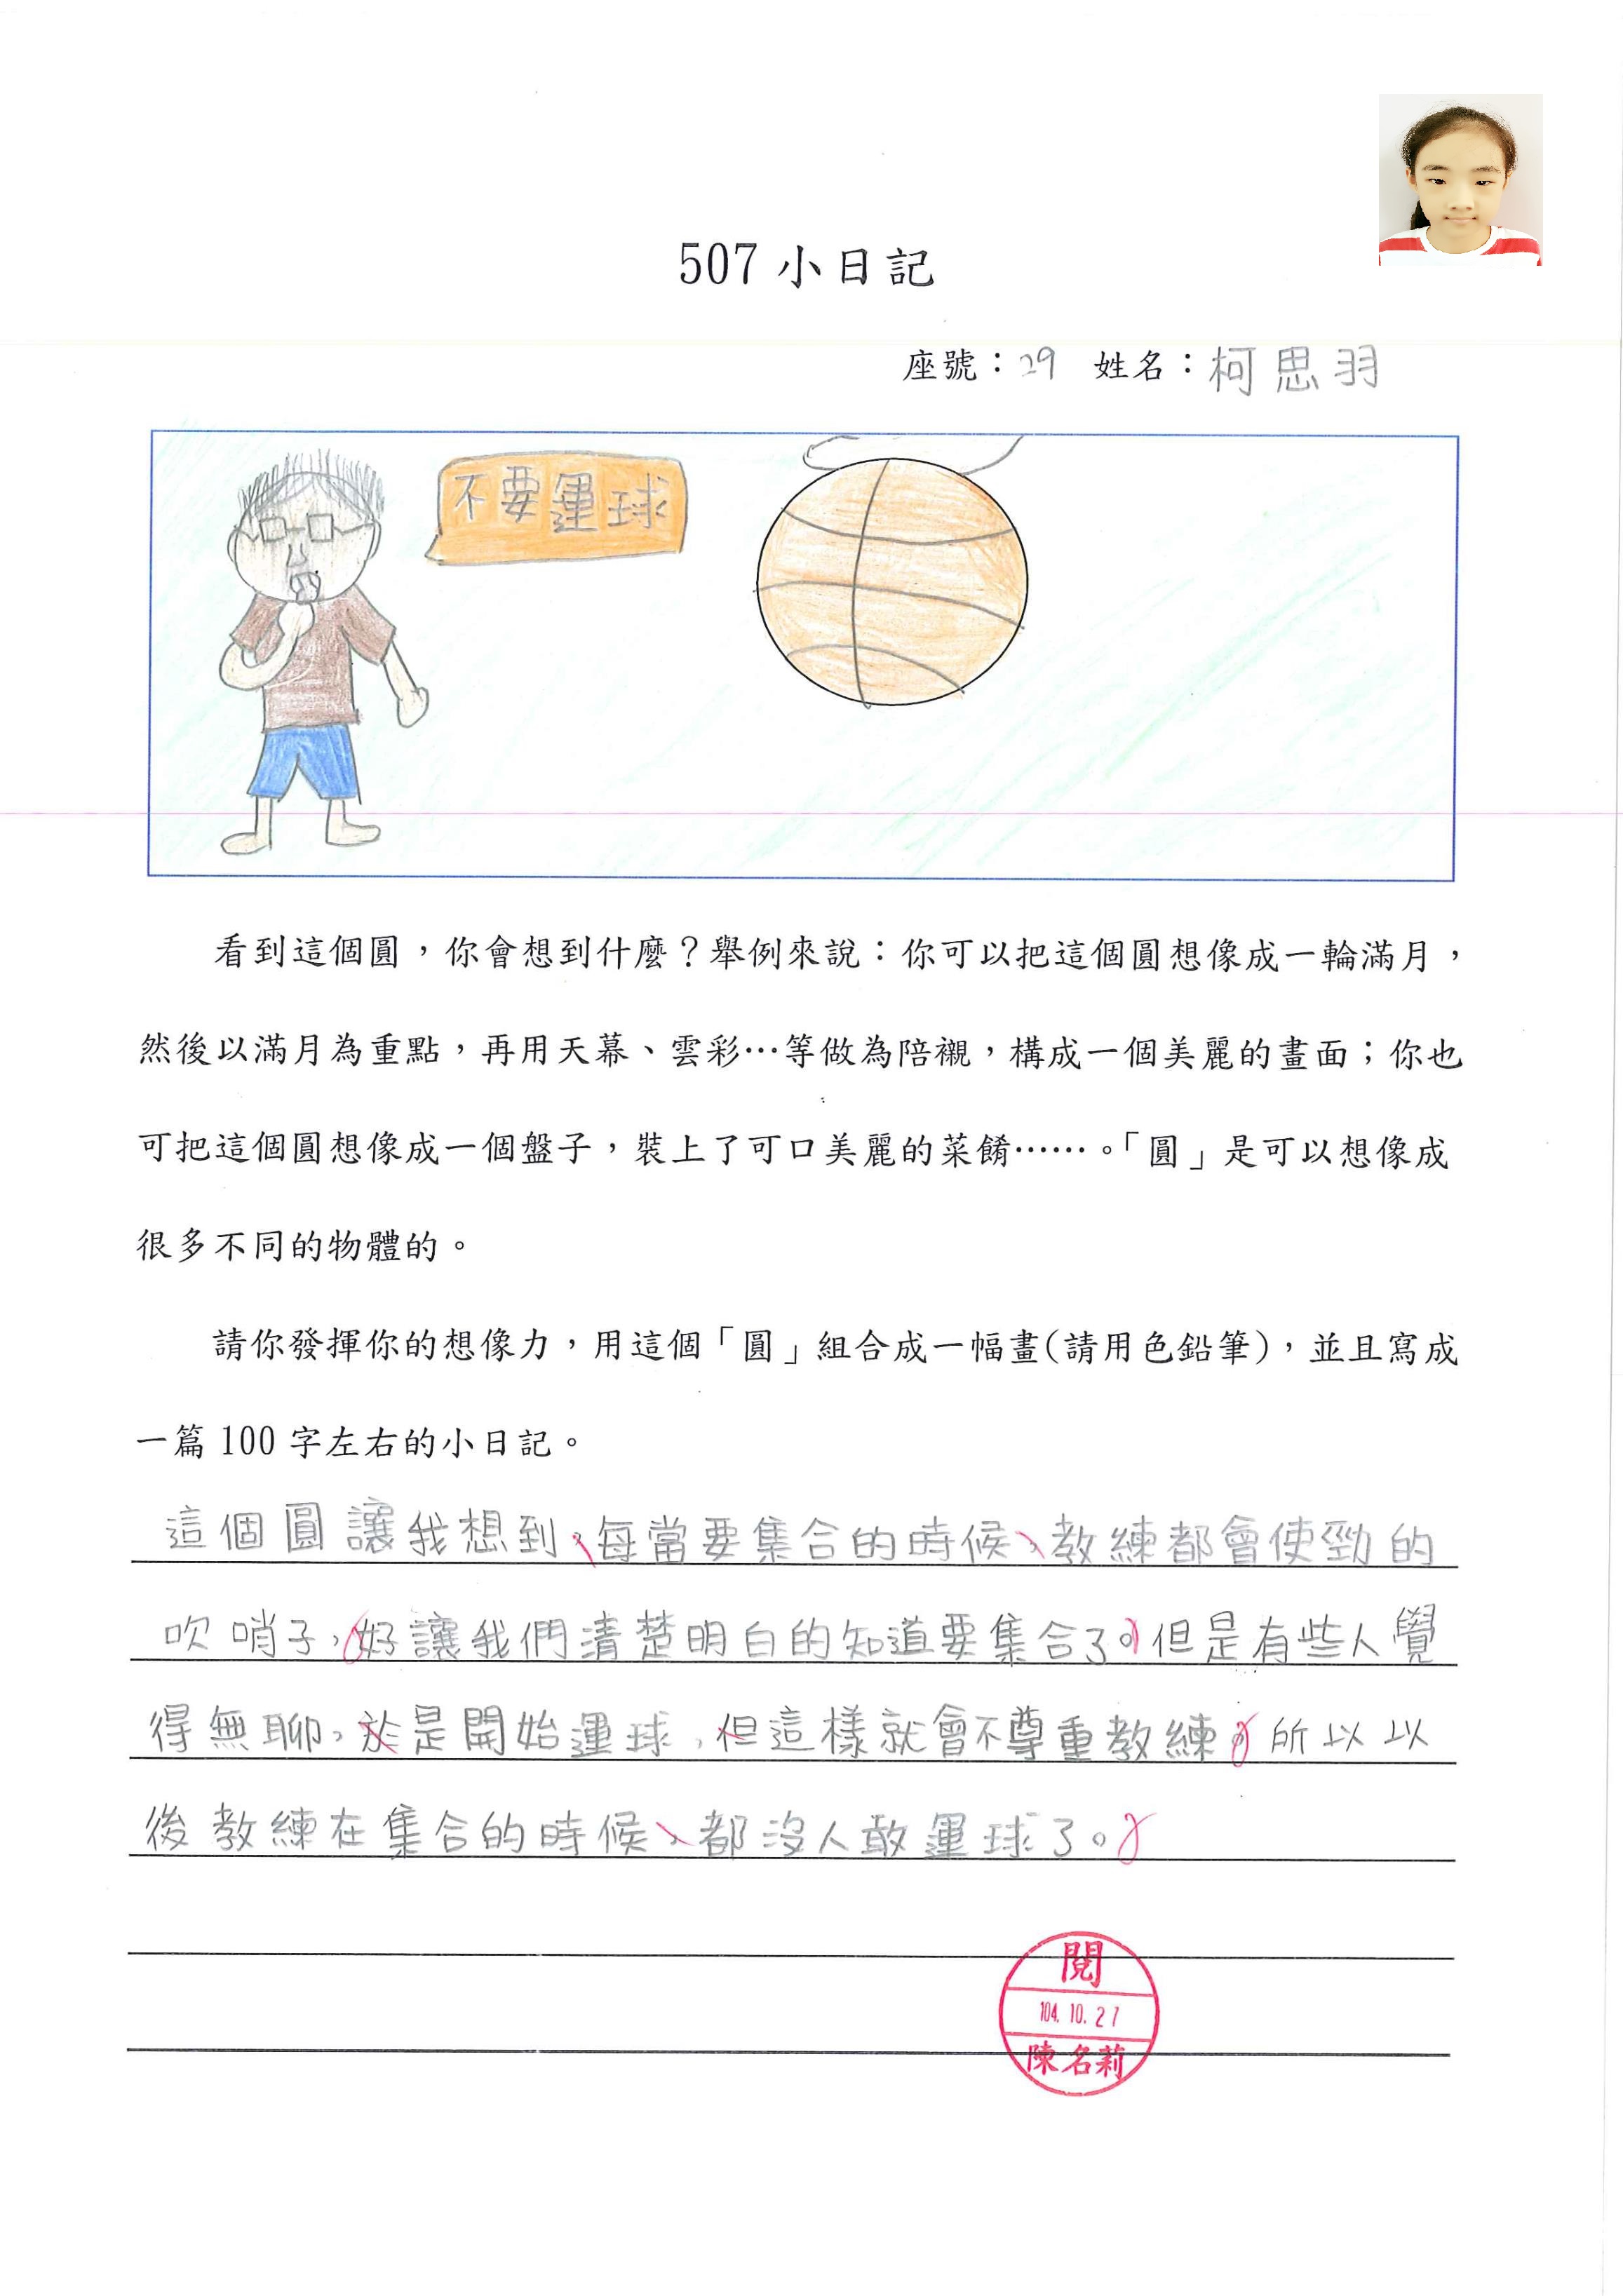 507 小日記
座號：29 姓名：柯思羽
不要運球
看到這個圓，你會想到什麼？舉例來說：你可以把這個圓想像成一輪滿月，
然後以滿月為重點，再用天幕、雲彩…等做為陪襯，構成一個美麗的畫面；你也
可把這個圓想像成一個盤子，裝上了可口美麗的菜餚……。「圓」是可以想像成
很多不同的物體的。
請你發揮你的想像力，用這個「圓」組合成一幅畫(請用色鉛筆)，並且寫成
一篇 100 字左右的小日記。
這個圓讓我想到，每當要集合的時候，教練都會使勁的
吹哨子，好讓我們清楚明白的知道要集合了。但是有些人覺
得無聊，於是開始運球，但這樣就會不尊重教練。所以以
後教練在集合的時候，都沒人敢運球了。
閱
104.10.27
陳名莉